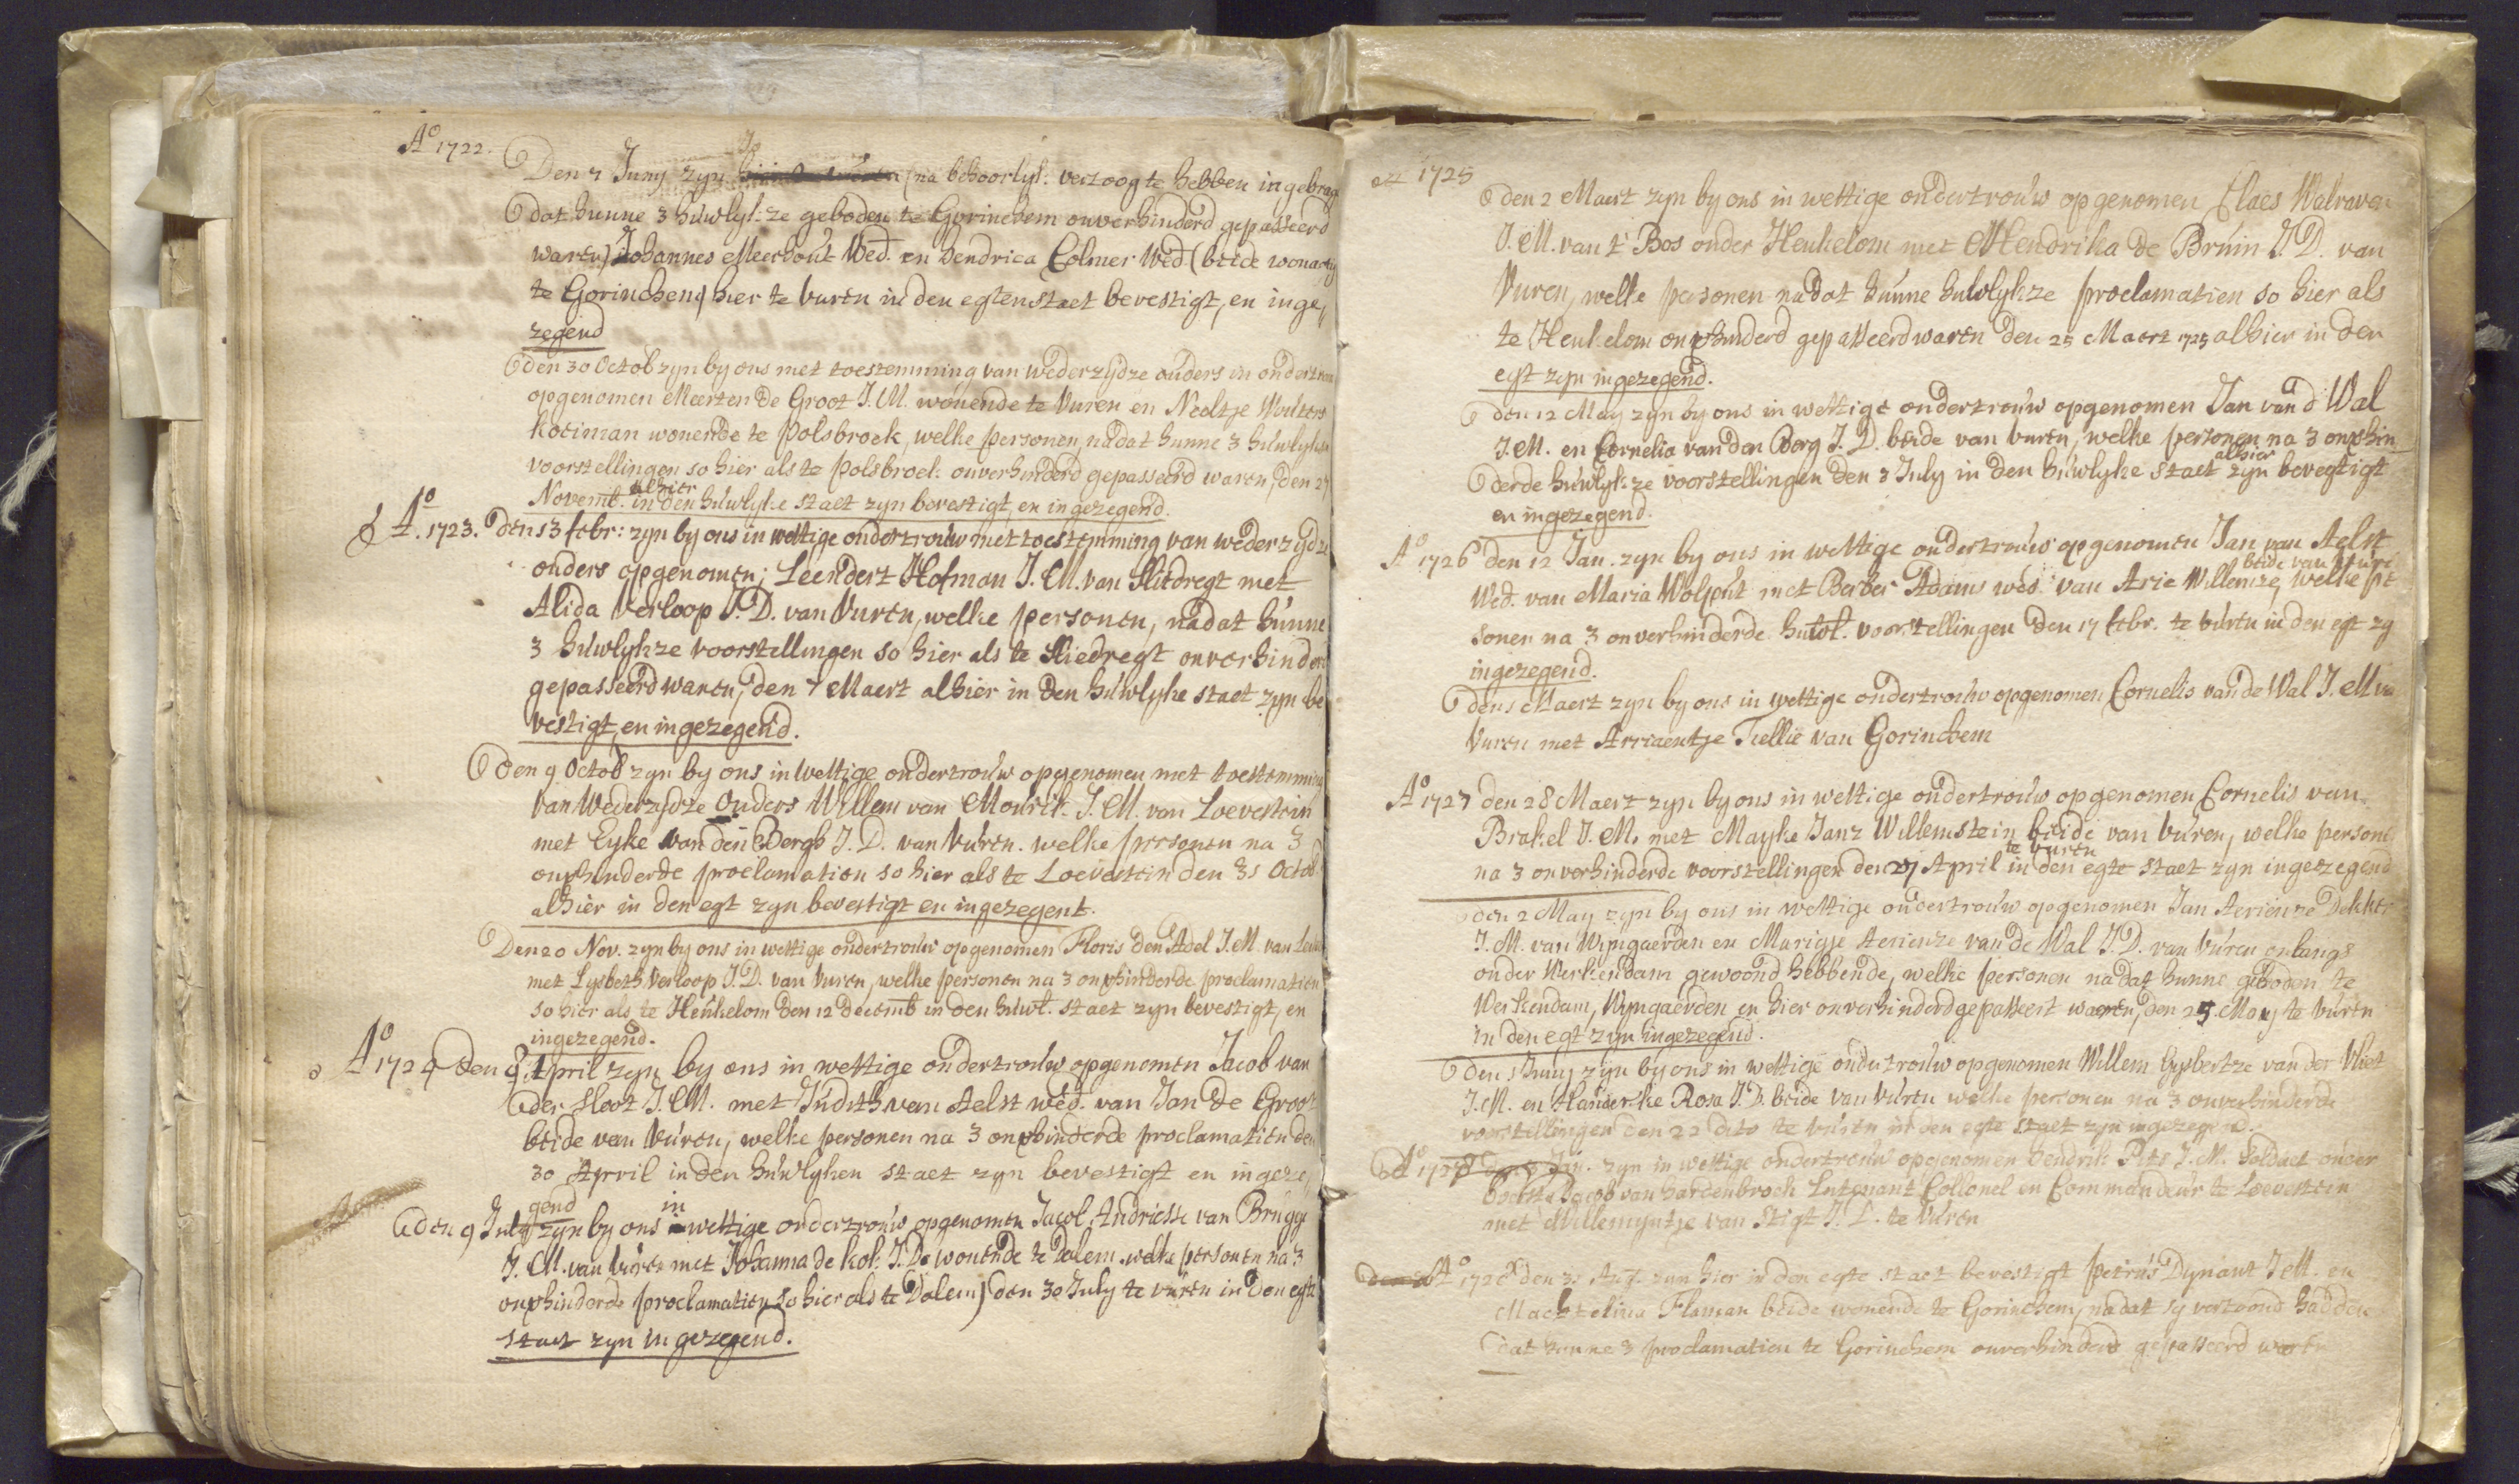 Ao 1722.
Den 7 Juny zyn (na behoorlyk: vertoog te hebben ingebrag
dat hunne 3 huwlyk:ze geboden te Gorinchem onverhinderd gepasseerd
waren) Johannes Meerhout Wed. en Hendrica Colmer Wed. (beide wonactig
te Gorinchem) hier te vuren in den egten staet bevestigt, en inge,
zegend
den 30 Octob zyn by ons met toestemming van wederzydze ouders in ondertrou
opgenomen Meerten De Groot J.M. wonende te Vuren en Neeltje Wouters
Koeiman wonende te Polsbroek, welke personen, nadat hunne 3 huwlykze
voorstellingen so hier als te polsbroek onverhinderd gepasseerd waren, den 27
Novemb. alhier in den huwlyke staet zyn bevestigt, en ingezegend.
Ao. 1723. den 13 febr: zyn by ons in wettige ondertrouw met toestemming van wederzydze
ouders opgenomen; Leendert Hofman J.M. van Sliedregt met
Alida Verloop J.D. van Vuren, welke personen, nadat hunne
3 huwlykze voorstellingen so hier als te Sliedregt onverhinderd
gepasseerd waren, den 7 Maert alhier in den huwlyke staet zyn be
vestigt, en ingezegend.
den 9 Octob zyn by ons in wettige ondertrouw opgenomen met toestemming
van Wederzydze Ouders Willem van Mourik. J.M. van Loevestein
met Eyke van den Bergh J.D. van Vuren. welke personen na 3
onverhinderde proclamatien so hier als te Loevestein den 31 Octob.
alhier in den egt zyn bevestigt en ingezegent.
Den 20 Nov. zyn by ons in wettige ondertrouw opgenomen Floris den Adel J.M. van
met Lysbeth Verloop J.D. van Vuren, welke personen na 3 onverhinderde proclamatien
so hier als te Heukelom den 12 decemb in den huwl. staet zyn bevestigt, en
ingezegend.
Ao 1724 den 8 April zyn by ons in wettige ondertrouw opgenomen Jacob van
der Sloot J.M. met Judith van Aelst wed. van Jan De Groot
beide van Vuren, welke personen na 3 onverhinderde proclamatien den
30 April in den huwlyken staet zyn bevestigt en ingeze,
gend
den 9 July zyn by ons in wettige ondertrouw opgenomen Jacob Andriesse van Brugge
J.M. van Vuren met Johanna de Kok J.D. wonende te Dalem. welke personen na 3
onverhinderde proclamatien so hier als te Dalem) den 30 July te vuren in den egte
staet zyn ingezegend.
1725
den 2 Maert zyn by ons in wettige ondertrouw opgenomen Claes Walraven
J.M. van 't Bos onder Heukelom met Hendrika de Bruin J.D. van
Vuren, welke personen nadat hunne huwlykze proclamatien so hier als
te Heukelom onverhinderd gepasseerd waren den 25 Maert 1725 alhier in den
egt zyn ingezegend.
den 12 May zyn by ons in wettige ondertrouw opgenomen Jan van d' Wal
J.M. en Cornelia van den Berg J.D. beide van vuren, welke personen na 3 onverhin
derde huwlykze voorstellingen den 3 July in den huwlyke staet alhier zyn bevestigt
en ingezegend.
Ao 1726 den 12 Jan. zyn by ons in wettige ondertrouw opgenomen Jan van Aelst
Wed. van Maria Wolput met Berber Adams wed. van Arie Willemze, beide van vuren welke per
sonen na 3 onverhinderde huwl. voorstellingen den 17 febr. te vuren in den egt zy
ingezegend.
den 1 Maert zyn by ons in wettige ondertrouw opgenomen Cornelis van de Wal J.M van
Vuren met Arriaentje Tiellie van Gorinchem
Ao 1727 den 28 Maert zyn by ons in wettige ondertrouw opgenomen Cornelis van
Brakel J.M. met Mayke Janz Willemstein beide van Vuren, welke persone
na 3 onverhinderde voorstellingen den April te vuren in den egte staet zyn ingezegend
den 2 May zyn by ons in wettige ondertrouw opgenomen Jan Aerienze Dekker
J.M. van Wyngaerden en Marigje Aerienze van de Wal J.D. van Vuren onlangs
onder Werkendam gewoond hebbende, welke personen nadat hunne geboden te
Werkendam, Wyngaerden en hier onverhinderd gepasseert waren, den 25 May te Vuren
in den egt zyn ingezegend.
den 1 Juny zyn by ons in wettige ondertrouw opgenomen Willem Gysbertze van der Vliet
J.M. en Handerske Rosa J.D. beide van Vuren welke personen na 3 onverhinderde
voorstellingen den 22 dito te vuren in den egte staet zyn ingezegend.
Ao 1728 zyn in wettige ondertrouw opgenomen Hendrik Pets J.M. Soldaet onder
van Hardenbroek Lutenant Collonel en Commandeur te Loevestein
met Willemyntje van Stigt J.D. te Vuren
Ao 1728 den 31 Aug. zyn hier in den egte staet bevestigt Petrus Dynant J.M. en
Machtelina Flaman beide wonende te Gorinchem, nadat sy vertoond hadden
dat hunne 3 proclamatien te Gorinchem onverhinderd gepasseerd waren